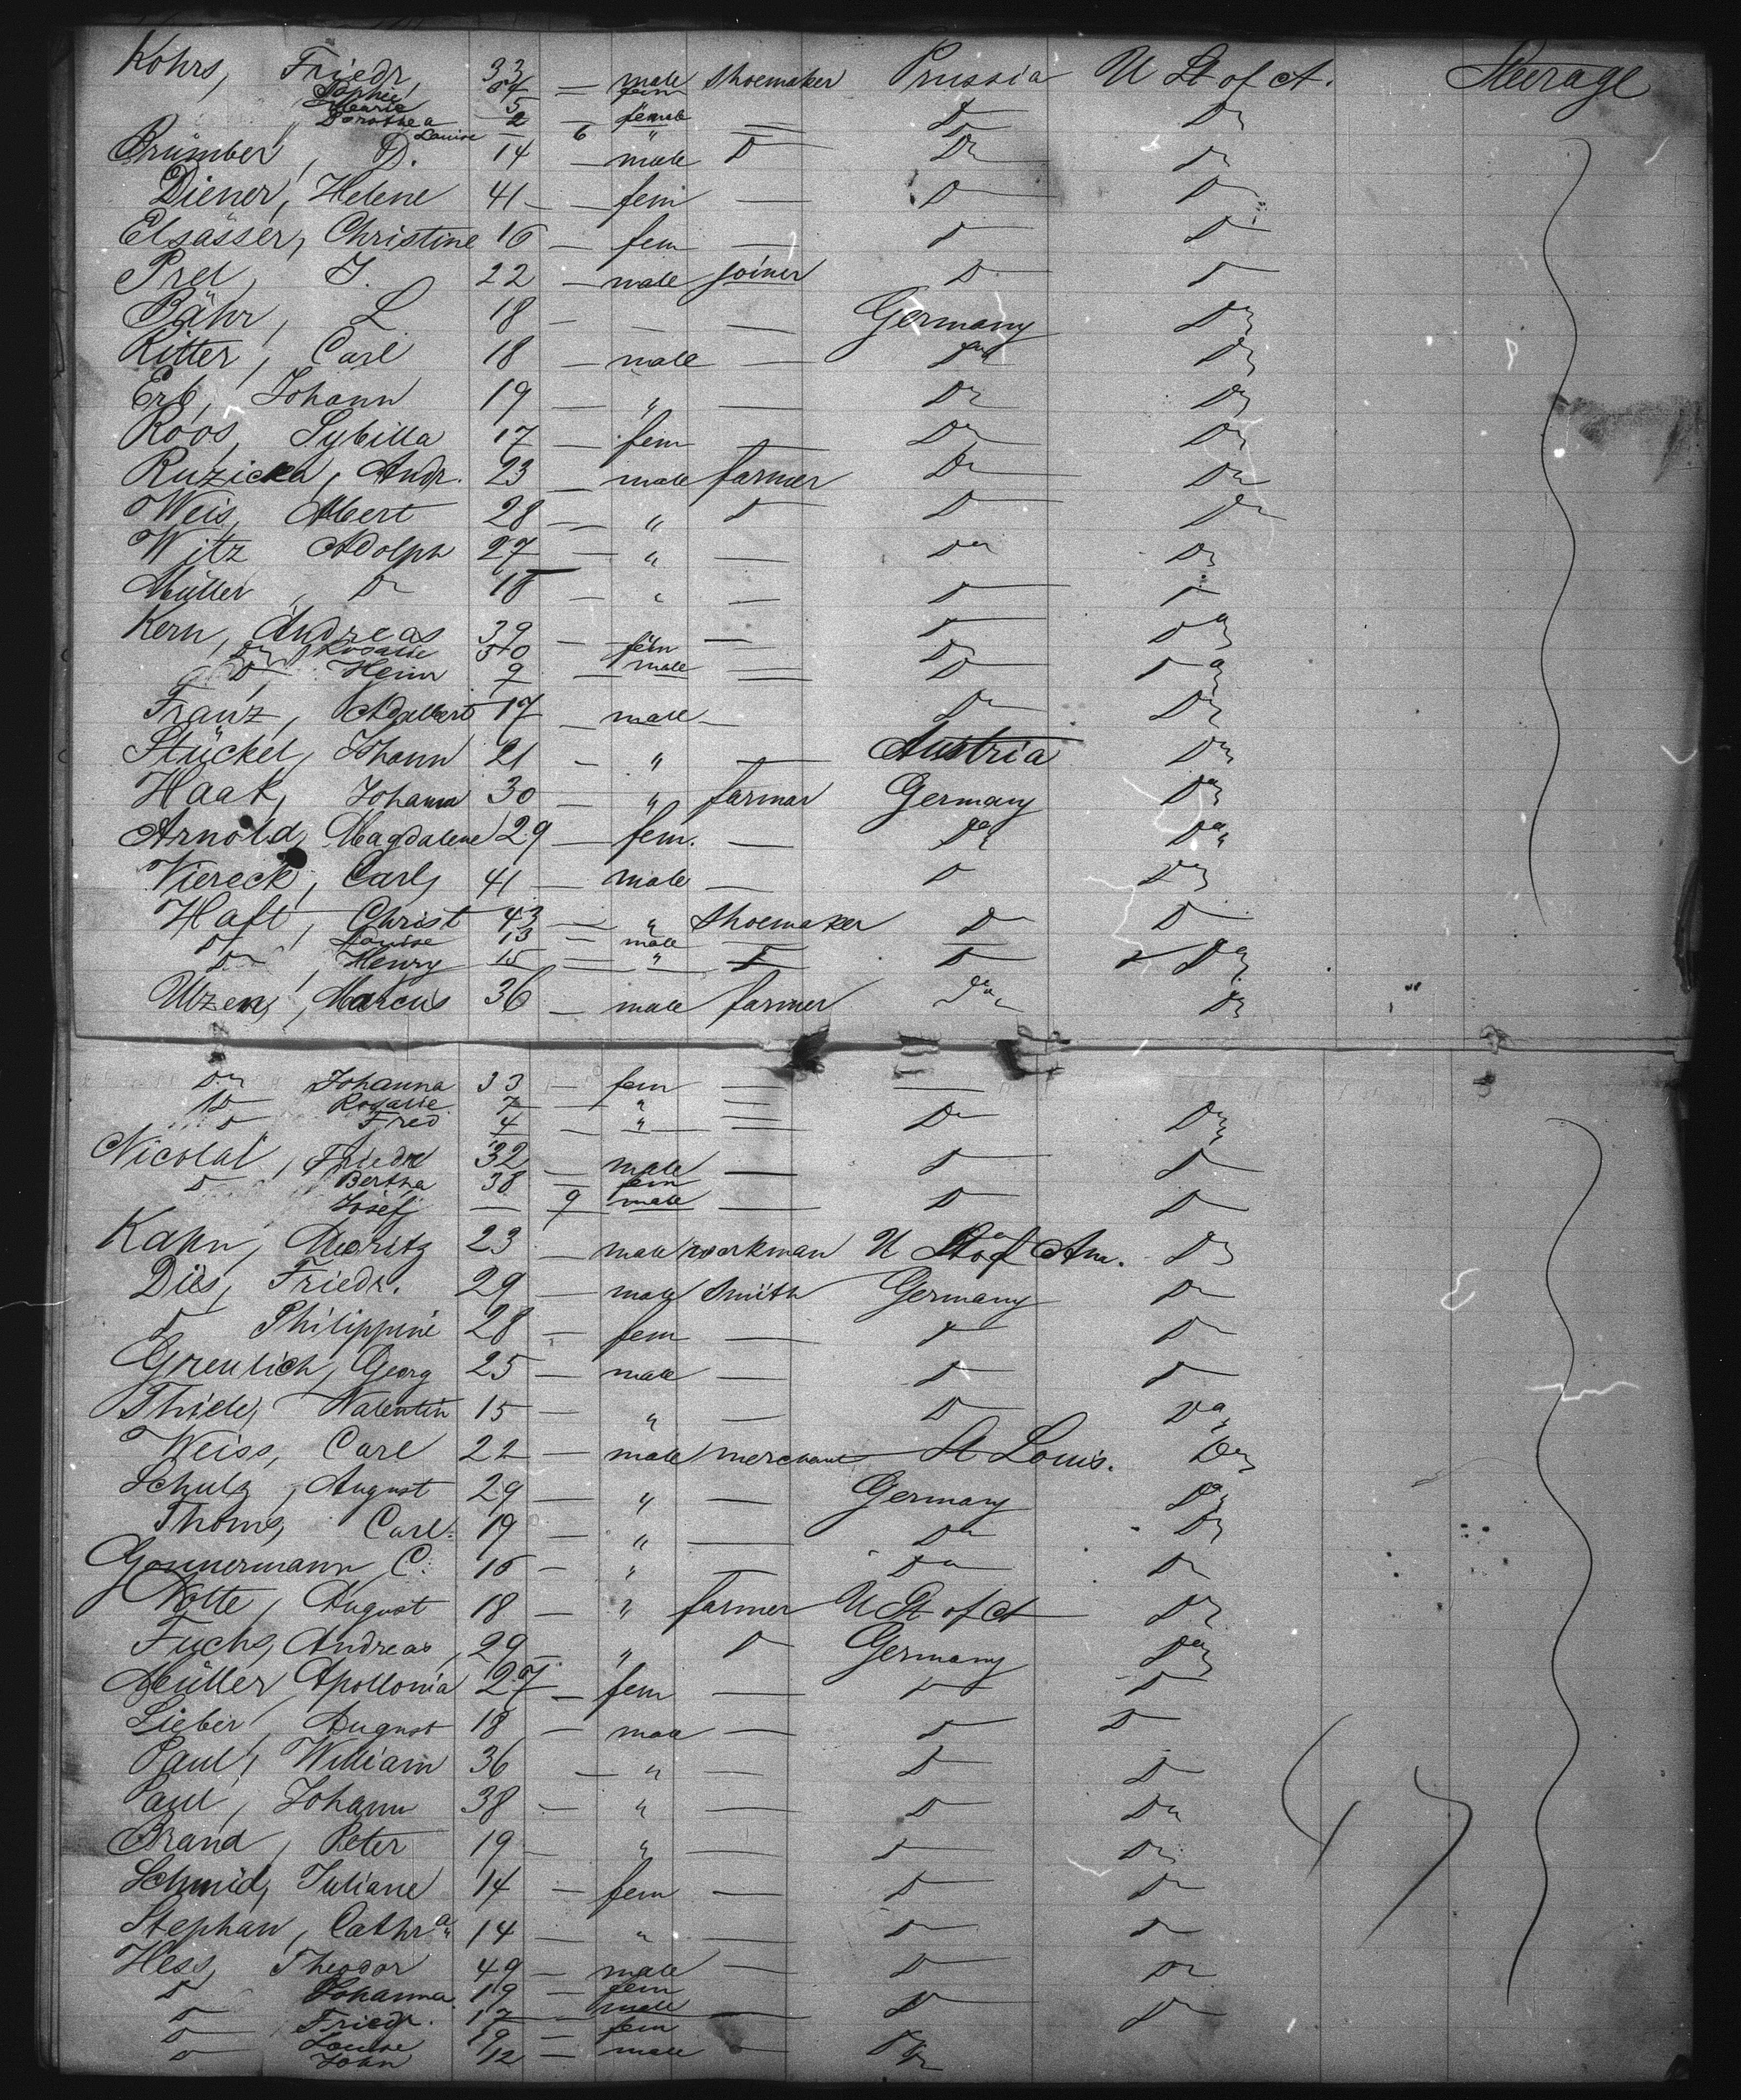 Kohrs, Friedr, 33 — male shoemaker Prussia U St of A. Steerage
Sophie fem
Marie 5 — female — Do Do
" Dorothea 2
Louise — 6 " — Do
D. 14 — male Do Do Do
Diener, Helene 41 — fem — Do Do
Elsässer, Christine 16 — fem — Do Do
Prel, J. 22 — male joiner Do Do
Bähr, L 18 — — — Germany Do
Ritter, Carl 18 — male — Do Do
Erb, Johann 19 — " — Do Do
Roos, Sybilla 17 — fem — Do Do
Ruzicka, Andr. 23 — male farmer Do Do
Weis, Albert 28 — " Do Do Do
Witz Adolph 27 — " — Do Do
Müller, Do 18 — " — Do Do
Kern, Andreas 39 — — — Do Do
Do Rosalie 30 fem Do
Do Heinr 9 — male — Do Do
Franz, Adalbert 17 — male — Do Do
Stückel, Johann 21 — " — Austria Do
Haak, Johann 30 — " farmar Germany Do
Arnold, Magdalene 29 — fem. — Do Do
Viereck, Carl 41 — male — Do Do
Haft, Christ 43 — " Shoemaker Do Do
Do, Louise 13 — male — —
Do, Henry 15 — " Do Do Do
Marcus 36 — male farmer Do Do
Do Johanna 33 — fem — —
Do Rosalie 7 — " —
Do Fred 4 — " — Do Do
Nicolai, Friedr 32 — male — Do Do
Do Bertha 38 — fem
Josef — 9 male — Do Do
Kahn, Moritz 23 — male workman U St of Am. Do
Dies, Friedr. 29 — male Smith Germany Do
Do Philippine 28 — fem — Do Do
Greulich, Georg 25 — male — Do Do
Thiele, Valentin 15 — " — Do Do
Weiss, Carl 22 — male merchant St Louis. Do
Schulz, August 29 — " — Germany Do
Thoms, Carl. 19 — " — Do Do
Gonnermann, C. 16 — " — Do Do
Notte, August 18 — " farmer U St of A Do
Fuchs, Andreas, 29 — " Do Germany Do
Müller, Apollonia 27 — fem — Do Do
Lieber, August 18 — male — Do Do
Paul, William 36 — " — Do Do
Paul, Johann 38 — " — Do Do
Brand, Peter 19 — " — Do Do
Schmid, Juliane 14 — fem — Do Do
Stephan, Cathra 14 — " — Do Do
Hess, Theodor 49 — male — Do Do
Do Johanna 19 — fem
Do Friedr. 17 — male — Do Do
Do Louise — fem
Do John — male — Do